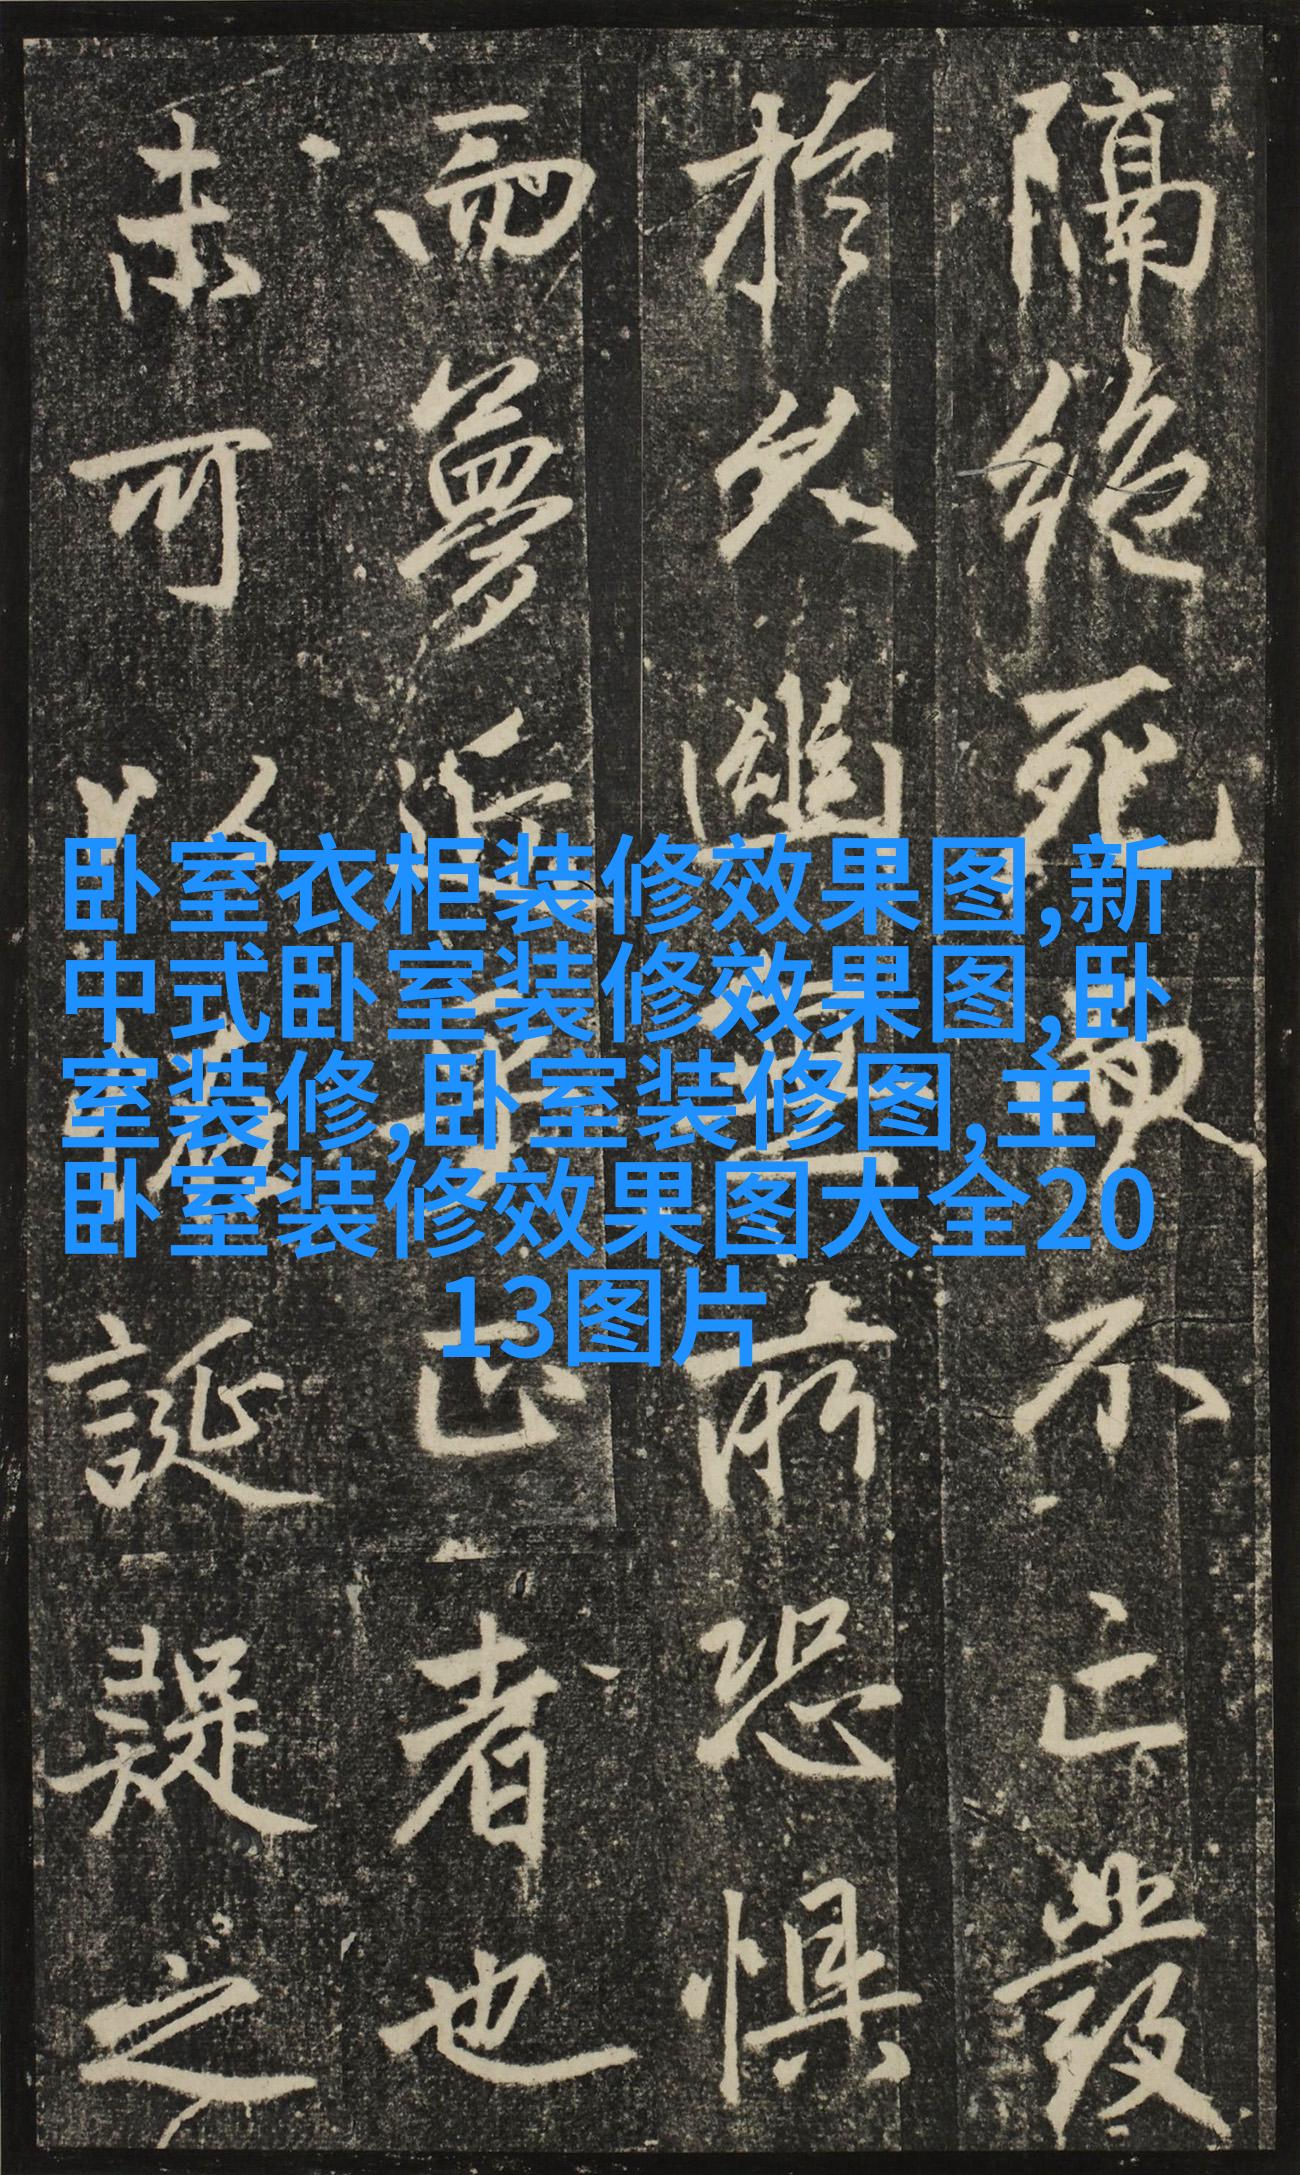 卧室衣柜装修效果图,新
中式卧室装修效果图,卧
室装修,卧室装修图,主
卧室装修效果图大全20
13图片
隔絶死不亡發
於久幽所恐懼
而夢正者也
未可以誕疑之